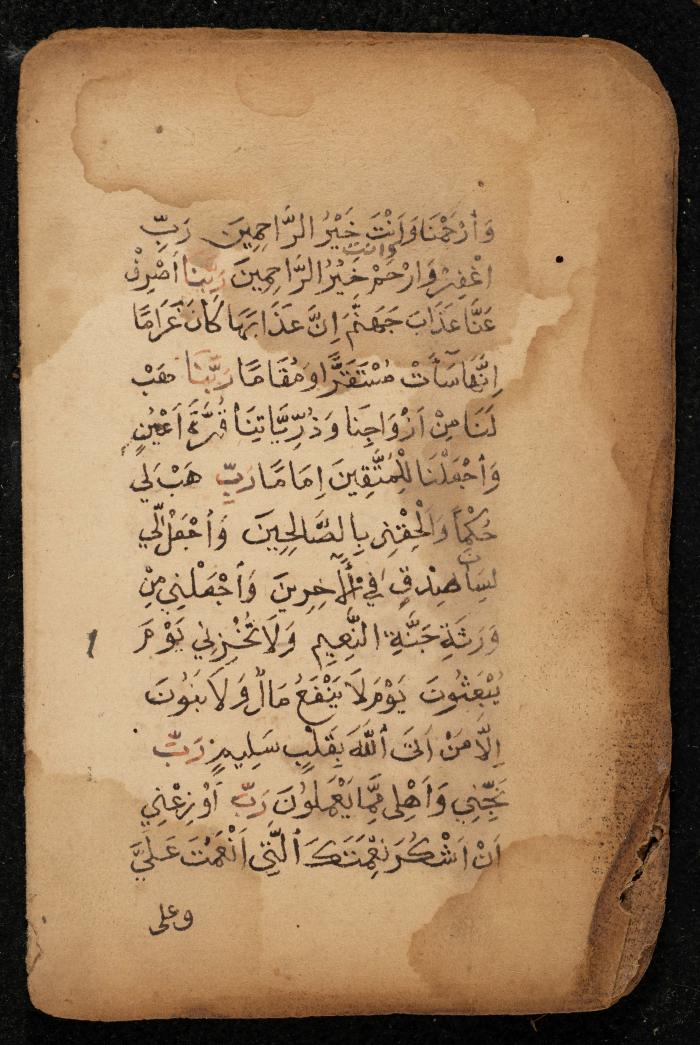 وَٱرْحَمْنَا وَاَنْتَ خَيْرُ الرَّاحِمِينَ رَبِّ
وانت
اغْفِرْ وَارْحَمْ خَيْرُ الرَّاحِمِينَ رَبَّنا اَصْرِفْ
عَنَّا عَذَابَ جَهَنَّمَ اِنَّ عَذَابَهَا كَانَ غَرَامًا
اِنَّهَا سَآءَتْ مُسْتَقَرًّا وَمُقَامًا رَبَّنَا هَبْ
لَنَا مِنْ اَزْوَاجِنا وَذُرِّيَّاتِنَا قُرَّةَ اَعْيُنٍ
وَٱجْعَلْنَا لِلْمُتَّقِينَ اِمَامًا رَبِّ هَبْ لِي
حُكْمًا وَاَلْحِقْنِي بِالصَّالِحِينَ وَٱجْعَلْ لِّي
لِسَانَ صِدْقٍ فِي ٱلْاٰخِرِينَ وَٱجْعَلْنِي مِنْ
وَرَثَةِ جَنَّةِ النَّعِيمِ وَلَا تُخْزِنِي يَوْمَ
يُبْعَثُونَ يَوْمَ لَا يَنْفَعُ مَالٌ وَلَا بَنُونَ
اِلَّا مَنْ اَتَى ٱللَّهَ بِقَلْبٍ سَلِيمٍ رَبِّ
نَجِّنِي وَاَهْلِى مِمَّا يَعْمَلُونَ رَبِّ اَوْزِعْنِي
اَنْ اَشْكُرَ نِعْمَتَكَ ٱلَّتِي اَنْعَمْتَ عَلَيَّ
وعلى